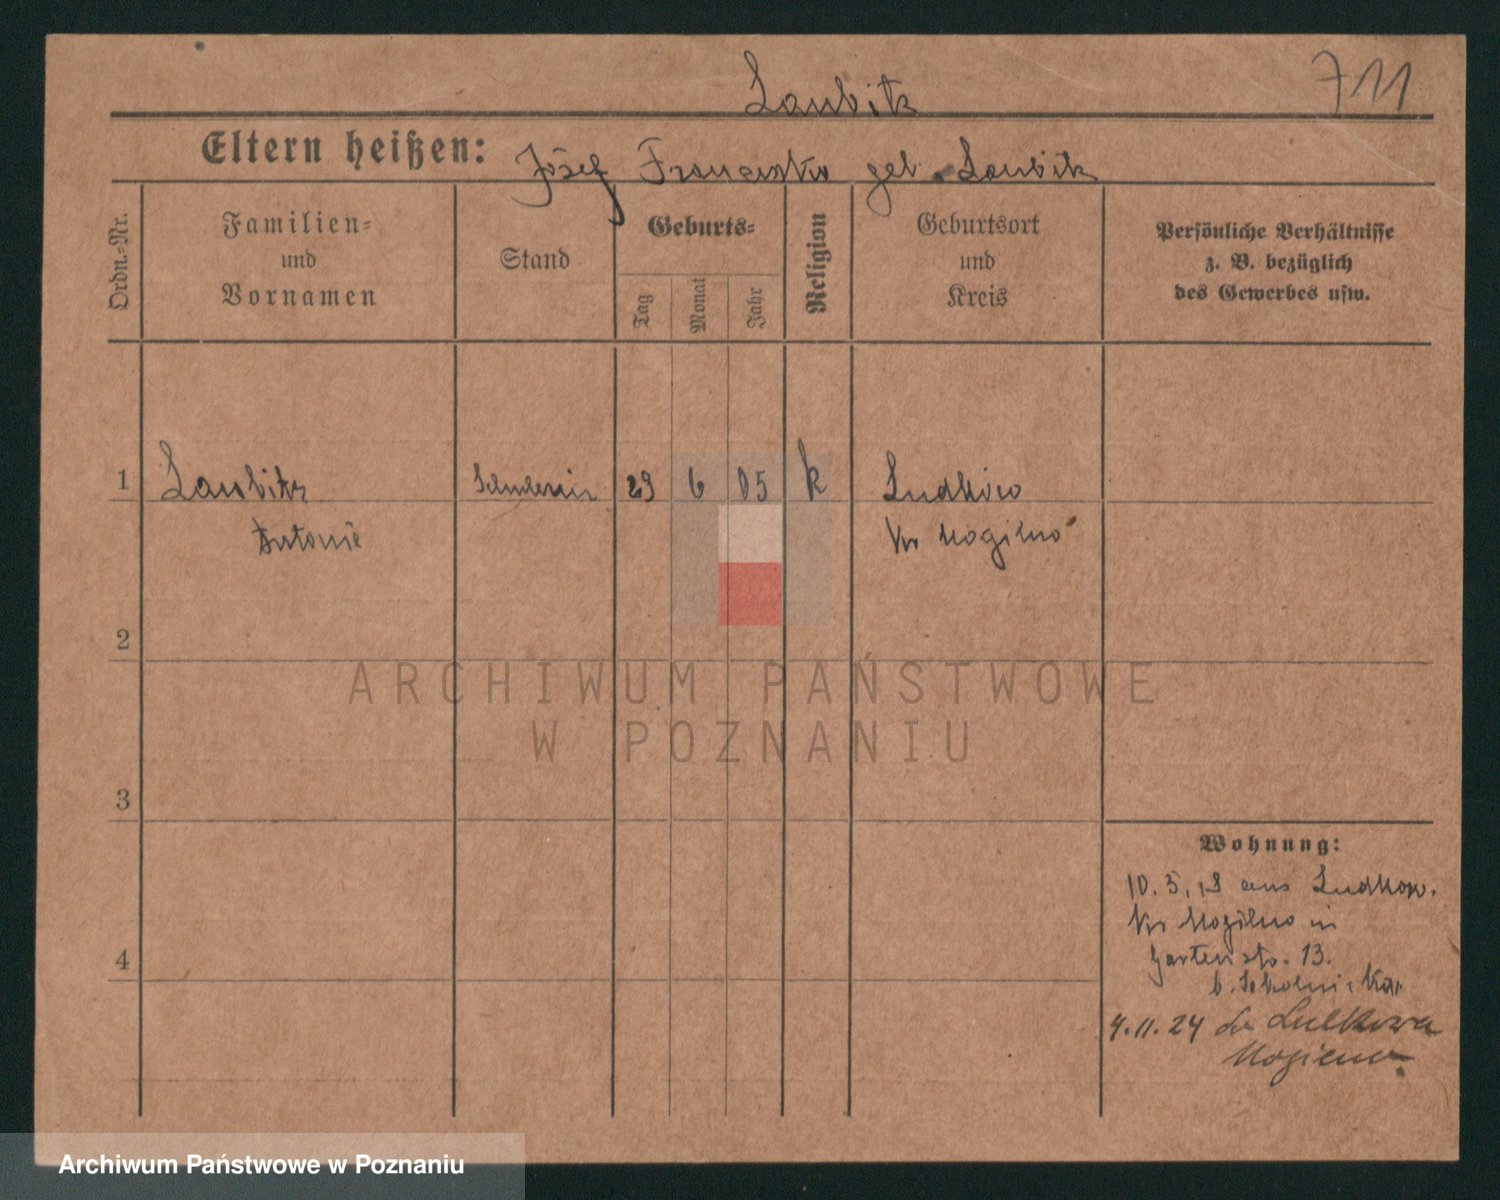 Laubitz
711
Eltern heißen: Józef Franciszka geb. Laubitz
Ordn.-Nr.
Familien-
und
Vornamen
Stand
Geburts-
Tag
Monat
Jahr
Religion
Geburtsort
und
Kreis
Persönliche Verhältnisse
z. B. bezüglich
des Gewerbes usw.
1 Laubitz Schülerin 29 6 05 k Ludkowo
Antonie Kr Mogilno
2
ARCHIWUM PAŃSTWOWE
W POZNANIU
3
Wohnung:
10. 5. 18 aus Ludkow.
Kr Mogilno in
4
Gartenstr. 13.
b.
4.11.24
Archiwum Państwowe w Poznaniu